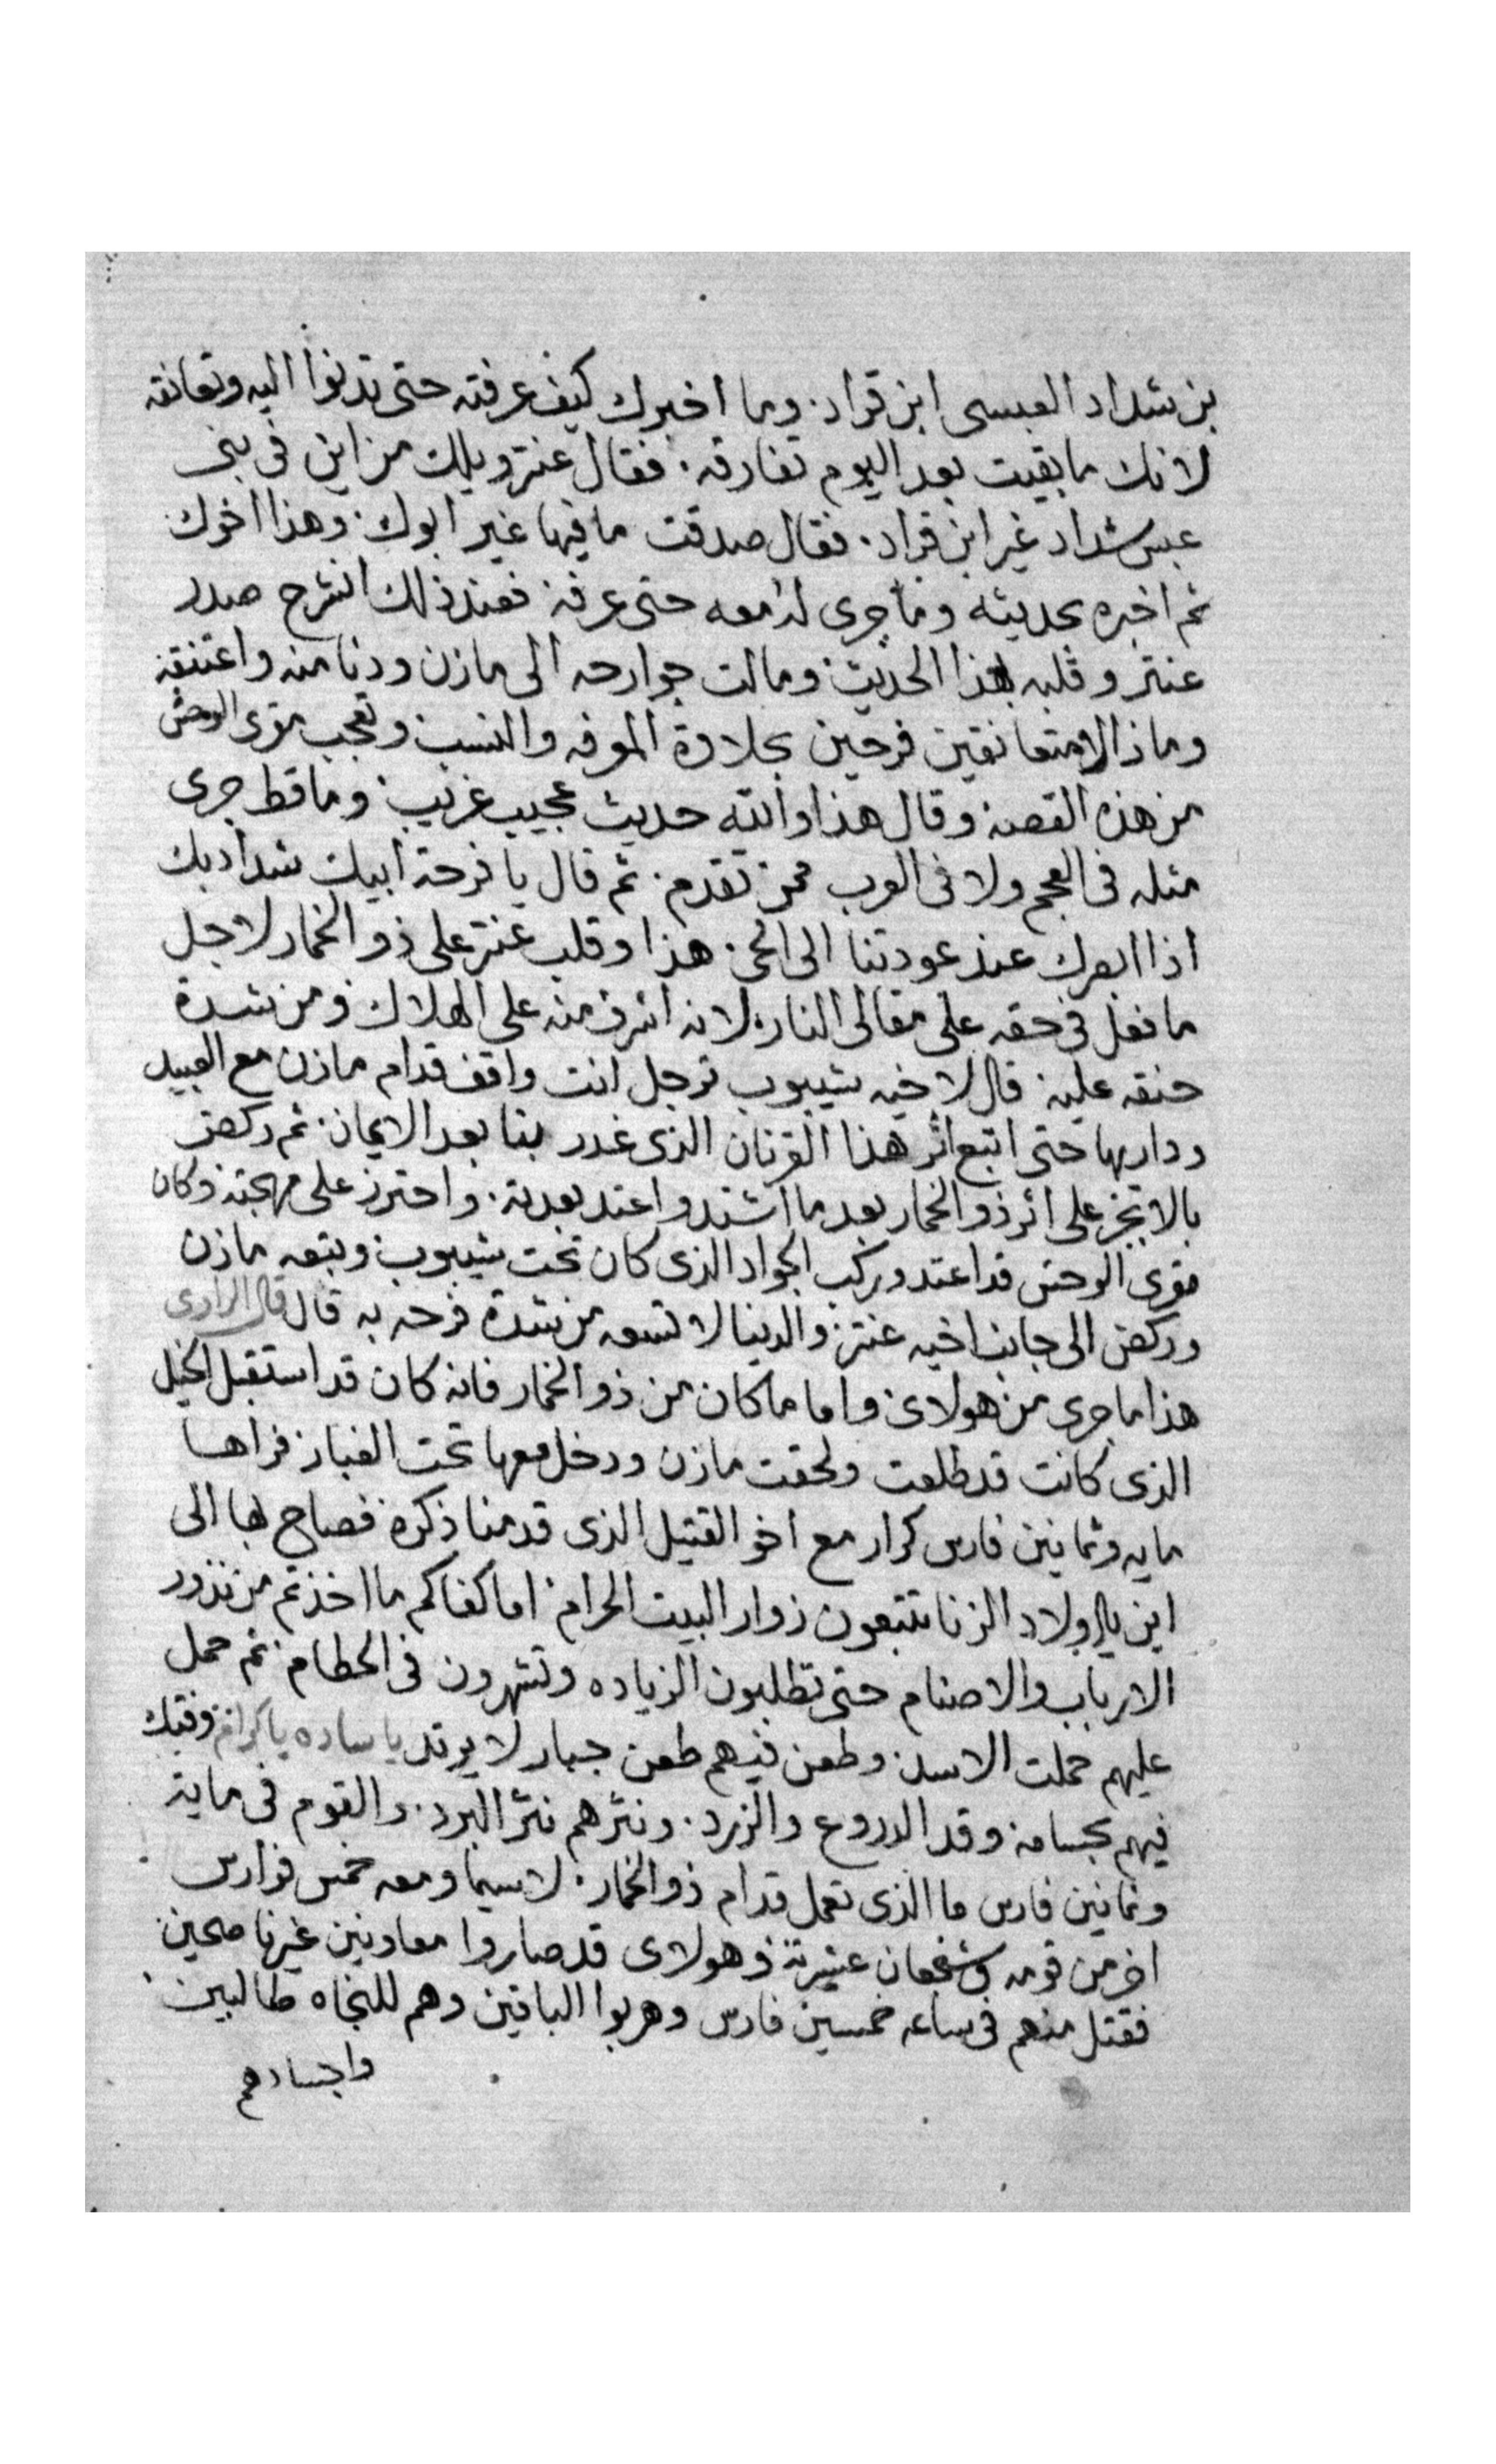 بن شداد العبسى ابن قراد. وما اخبرك كيف عرفته حتى تدنوا اليه وتعانقه
لانك ما بقيت بعد اليوم تفارقه. فقال عنتر ويلك من اين فى بنى
عبس شداد غير ابن قراد. فقال صدقت ما فيها غير ابوك. وهذا اخوك
ثم اخبره بحديثه وما جرى له معه حتى عرفه فعند ذلك انشرح صدر
عنتر وقلبه بهذا الحديث ومالت جوارحه الى مازن ودنا منه واعتنقه
وما ذالا متعانقين فرحين بحلاوة المعرفه والنسب وتعجب مقرى الوحش
من هذه القصه وقال هذا والله حديث عجيب غريب وما قط جرى
مثله فى العجم ولا فى العرب ممن تقدم. ثم قال يا فرحة ابيك شداد بك
اذا ابصرك عند عودتنا الى الحى. هذا وقلب عنتر على ذو الخمار لاجل
ما فعل فى حقه على مقالى النار. لانه اشرف منه على الهلاك ومن شدة
حنقه عليه قال لاخيه شيبوب ترجل انت واقف قدام مازن مع العبيد
وداريها حتى اتبع اثر هذا القرنان الذى غدر بنا بعد الايمان. ثم ركض
بالابجر على اثر ذو الخمار بعد ما اشتد واعتد بعدته. واحترز على مهجته وكان
مقرى الوحش قد اعتد وركب الجواد الذى كان تحت شيبوب وتبعه مازن
وركض الى جانب اخيه عنتر والدينا لا تسعه من شدة فرحه به قال قال الراوى
هذا ما جرى من هولاى واما ما كان من ذو الخمار فانه كان قد استقبل الخيل
الذى كانت قد طلعت ولحقت مازن ودخل معها تحت الغبار فراها
مايه وثمانين فارس كرار مع اخو القتيل الذى قدمنا ذكره فصاح بها الى
اين يا اولاد الزنا تتبعون زوار البيت الحرام. اما كفاكم ما اخذتم من نذور
الارباب والاصنام حتى تطلبون الزياده وتشهرون فى الحطام. ثم حمل
عليهم حملت الاسد وطعن فيهم طعن جبار لا يرتد يا ساده يا كرام وفتك
فيهم بحسامه وقد الدروع والزرد. ونثرهم نثر البرد. والقوم فى ماية
وثمانين فارس ما الذى تعمل قدام ذو الخمار. لا سيما ومعه خمس فوارس
اخر من قومه وشجعان عشيرته وهولاى قد صاروا معاونين غير ناصحين
فقتل منهم فى ساعه خمسين فارس وهربوا الباقين وهم للنجاه طالبين
واجسادهم